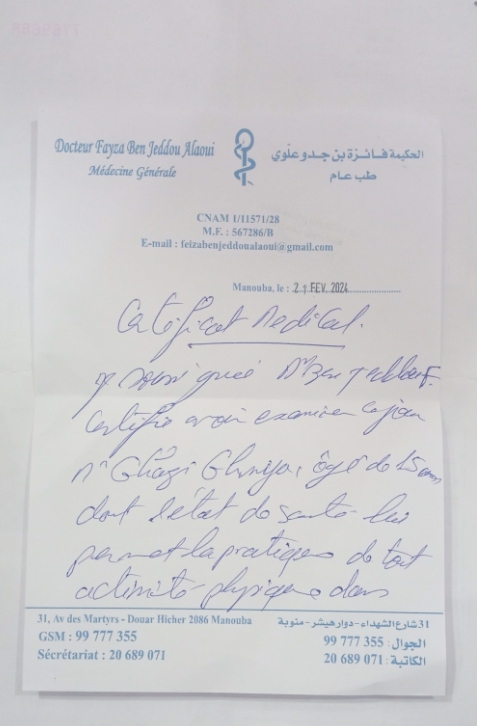 Docteur Fayza Ben Jeddou Alaoui
Médecine Générale
الحكيمة فائزة بن جدو علوي
طب عام
CNAM 1/11571/28
M.F. : 567286/B
E-mail : feizabenjeddoualaoui@gmail.com
Manouba, le : 29 FEV. 2024
Certificat Medical.
Je soussignée Dr Ben Jeddou F.
Certifie avoir examiner ce jour
Mr Ghazi, âgé de 15 ans
dont l'état de santé lui
permet la pratique de tout
activité physique dans
31, Av des Martyrs - Douar Hicher 2086 Manouba
GSM : 99 777 355
Sécrétariat : 20 689 071
31 شارع الشهداء - دوار هيشر - منوبة
الجوال : 355 777 99
الكاتبة : 071 689 20